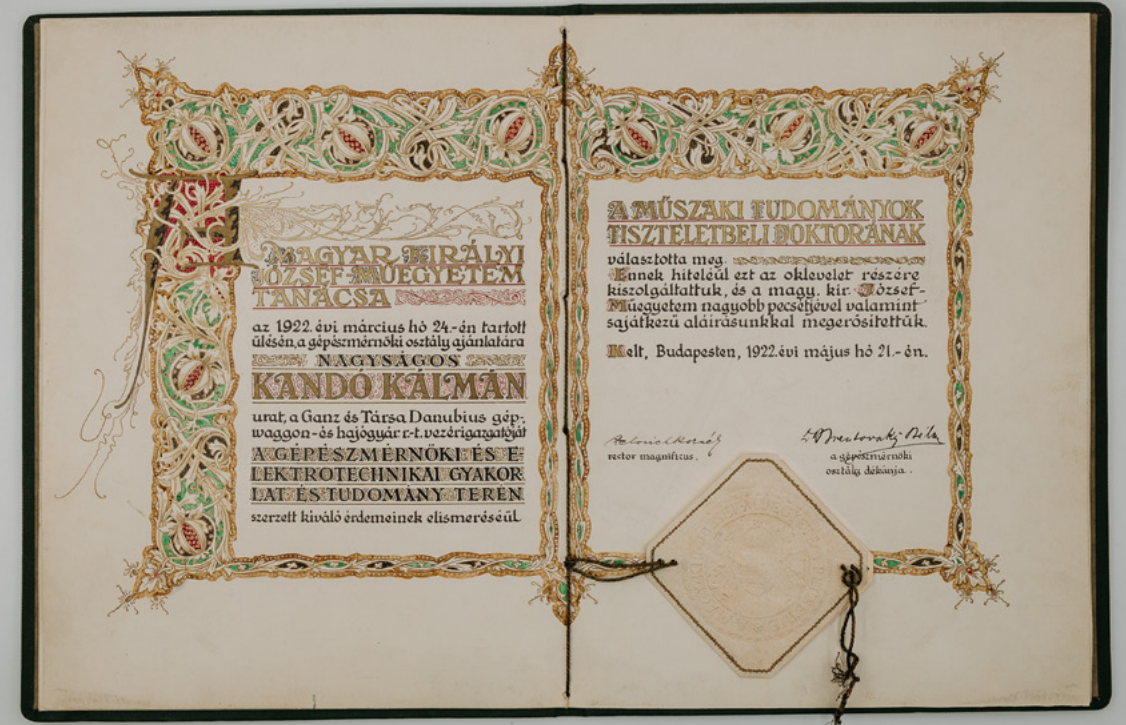 A
MAGYAR KIRÁLYI
JÓZSEF-MŰEGYETEM
TANÁCSA
az 1922. évi március hó 24.-én tartott
ülésén, a gépészmérnöki osztály ajánlatára
NAGYSÁGOS
KANDÓ KÁLMÁN
urat, a Ganz és Társa Danubius gép-,
waggon- és hajógyár r.-t. vezérigazgatóját
A GÉPÉSZMÉRNÖKI ÉS E-
LEKTROTECHNIKAI GYAKOR
LAT ÉS TUDOMÁNY TERÉN
szerzett kiváló érdemeinek elismeréséül
A MŰSZAKI TUDOMÁNYOK
TISZTELETBELI DOKTORÁNAK
választotta meg.
Ennek hiteléül ezt az oklevelet részére
kiszolgáltattuk, és a magy. kir. József-
Műegyetem nagyobb pecsétjével valamint
sajátkezű aláírásunkkal megerősítettük.
Kelt, Budapesten, 1922. évi május hó 21.-én.
rector magnificus.
a gépészmérnöki
osztály dékánja.